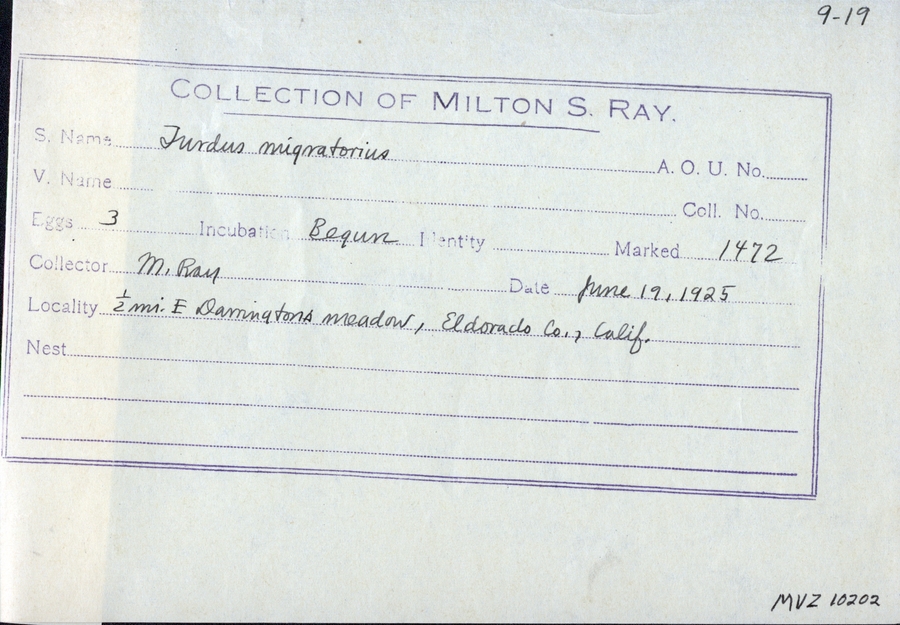 9-19
COLLECTION OF MILTON S. RAY.
S. Name Turdus migratorius A. O. U. No.
V. Name Coll. No.
Eggs 3 Incubation Begun Identity Marked 1472
Collector M. Ray Date June 19, 1925
Locality ½ mi. E Darringtons meadow, Eldorado Co., Calif.
Nest
MVZ 10202